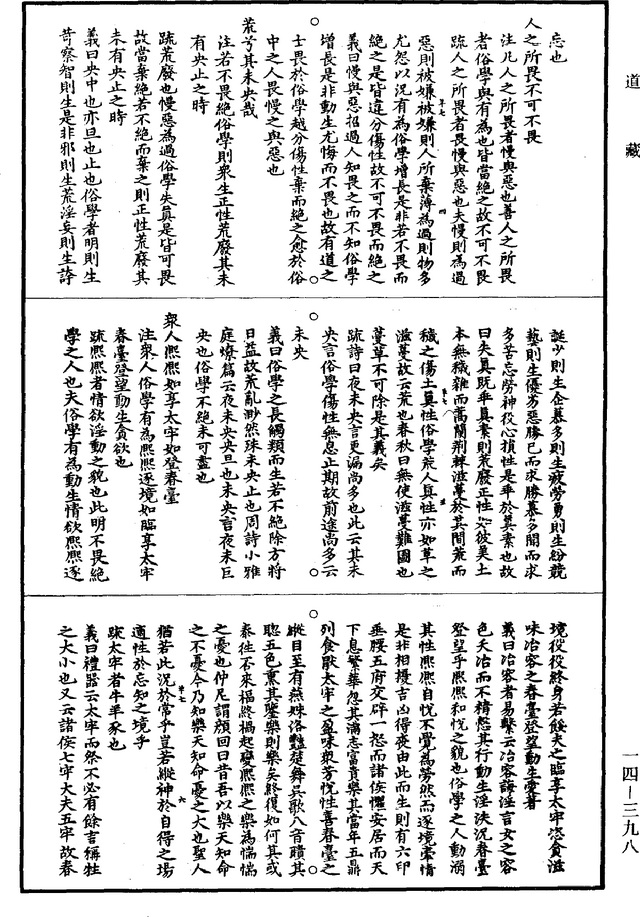 道藏
忘也
人之所畏不可不畏
注凡人之所畏者慢與惡也善人之所畏
者俗學與有為也皆當絕之故不可不畏
疏人之所畏者畏慢與惡也夫慢則為過
惡則被嫌被嫌則人所棄薄為過則物多
尤怨以況有為俗學增長是非若不畏而
絕之是皆違分傷性故不可不畏而絕之
義曰慢與惡招過人知畏之而不知俗學
增長是非動生尤悔而不畏也故有道之
士畏於俗學越分傷性棄而絕之愈於俗
中之人畏慢之與惡也
荒兮其未央哉
注若不畏絕俗學則衆生正性荒廢其未
有央止之時
疏荒廢也慢惡為過俗學失真是皆可畏
故當棄絕若不絕而棄之則正性荒廢其
未有央止之時
義曰央中也亦旦也止也俗學者明則生
苛察智則生是非邪則生荒淫妄則生誇
誕少則生企慕多則生疲勞勇則生紛競
藝則生優劣惡勝己而求勝慕多聞而求
多苦忘勞神役心損性是乖於真素也故
曰失真既乖真素則荒廢正性以彼美土
本無穢雜而蒿蘭荆棘滋蔓於其間荒而
穢之傷土真性俗學荒人真性亦如草之
滋蔓故云荒也春秋曰無使滋蔓難圖也
蔓草不可除是其義矣
疏詩曰夜未央言更漏尚多也此云其未
央言俗學傷性無息止期故前途尚多云
未央
義曰俗學之長觸類而生若不絕除方將
日益故荒亂渺然殊未央止也周詩小雅
庭燎篇云夜未央央旦也未央言夜未巨
央也俗學不絕未可盡也
衆人熙熙如享太牢如登春臺
注衆人俗學有為熙熙逐境如臨享太牢
春臺登望動生貪欲也
疏熙熙者情欲淫動之貌也此明不畏絕
學之人也夫俗學有為動生情欲熙熙逐
境役役終身若餒夫之臨享太牢恣貪滋
味冶容之春臺登望動生愛著
義曰冶容者易繫云冶容誨淫言女之容
色夭冶而不精慤其行動生淫泆況春臺
登望乎熙熙和悅之貌也俗學之人動溺
其性熙熙自悅不覺為勞然而逐境牽情
是非相攘吉凶得喪由此而生則有六印
垂腰五府交辟一怒而諸侯懼安居而天
下息繁華忽其滿志富貴樂其當年五鼎
列食厭太牢之盈味衆芳悅性喜春臺之
縱目至有燕姝洛豔楚舞吳歌八音聵其
聰五色熏其鑒樂則樂矣終復如何其或
泰往否來福終禍起變熙熙之樂為惴惴
之憂也仲尼謂顏回曰昔吾以樂天知命
之不憂今乃知樂天知命憂之大也聖人
猶若此況於常乎豈若縱神於自得之場
適性於忘知之境乎
疏太牢者牛羊豕也
義曰禮器云太牢而祭不必有餘言稱牲
之大小也又云諸侯七牢大夫五牢故春
一四—三九八